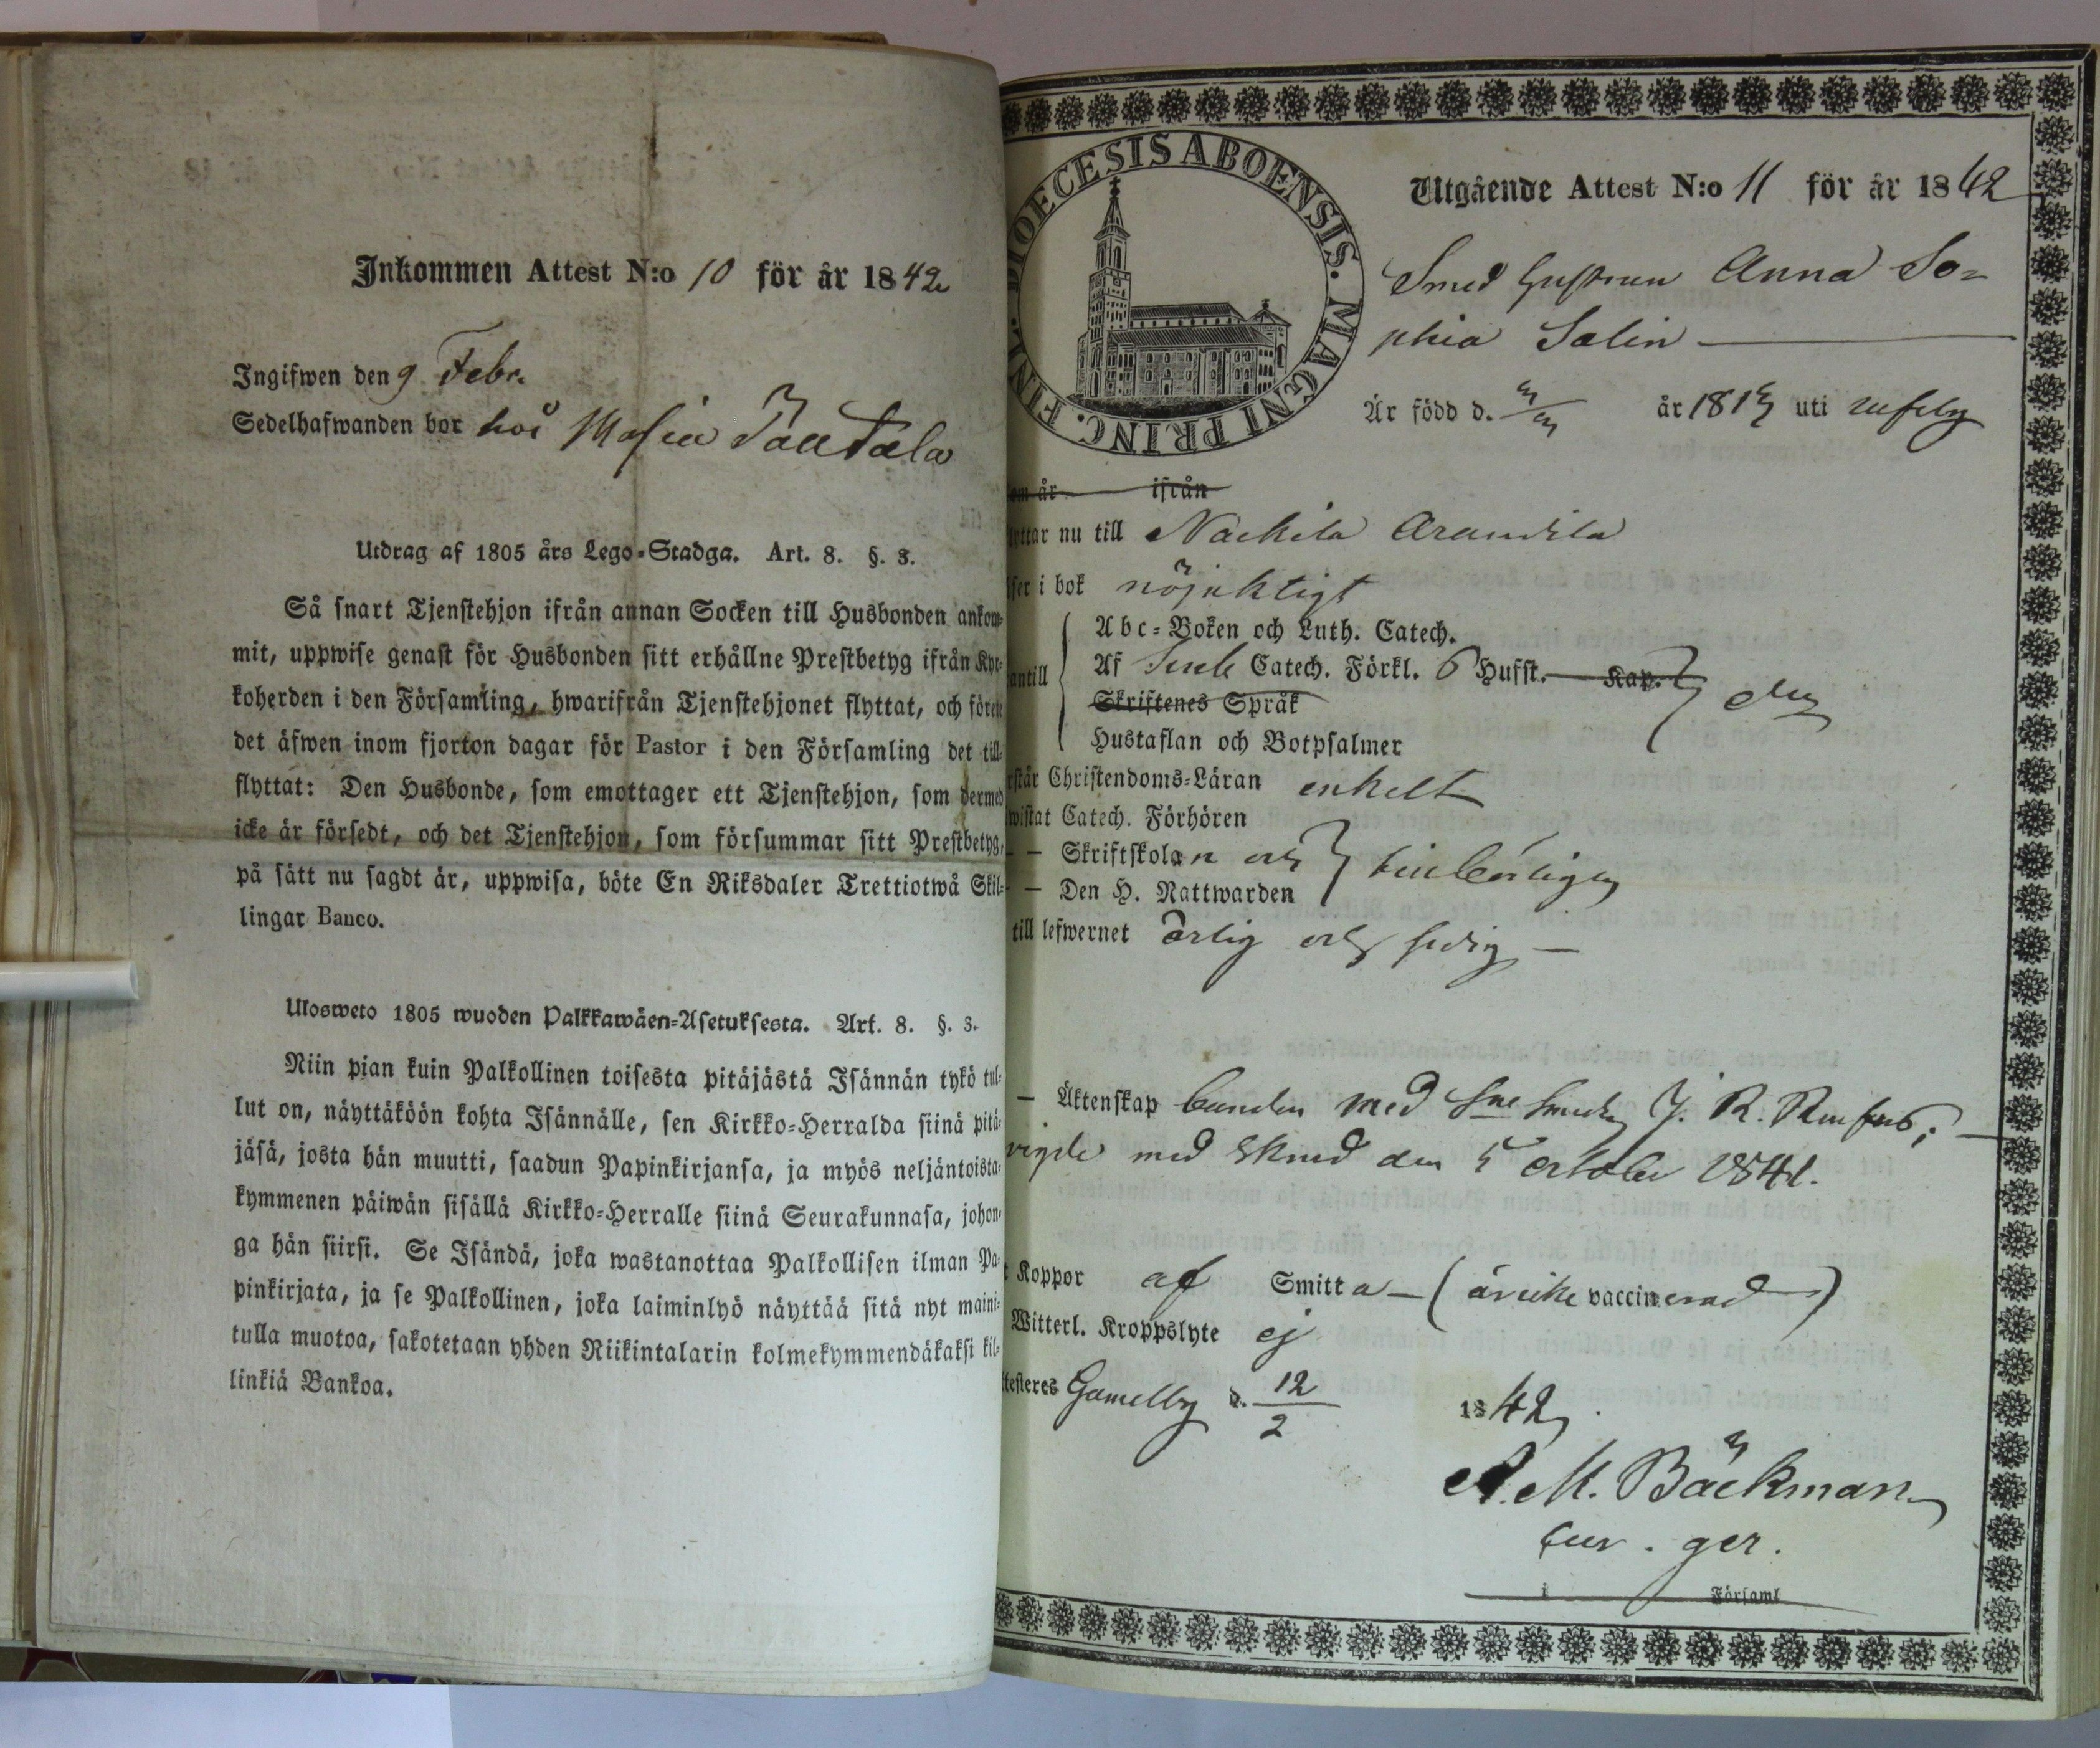 Inkommen Attest N:o 10 för år 1842
Ingifwen den 9 Febr.
Sedelhafwanden bor hos
Utdrag af 1805 års Lego-Stadga. Art. 8. §. 3.
Så snart Tjenstehjon ifrån annan Socken till Husbonden ankom-
mit, uppwise genast för Husbonden sitt erhållne Prestbetyg ifrån Kyr-
koherden i den Församling, hwarifrån Tjenstehjonet flyttat, och förete
det äfwen inom fjorton dagar för Pastor i den Församling det till-
flyttat: Den Husbonde, som emottager ett Tjenstehjon, som dermed
icke är försedt, och det Tjenstehjon, som försummar sitt Prestbetyg,
på sätt nu sagdt är, uppwisa, böte En Riksdaler Trettiotwå Skil-
lingar Banco.
Ulosweto 1805 wuoden Palkkawäen-Asetuksesta. Art. 8. §. 3.
Niin pian kuin Palkollinen toisesta pitäjästä Isännän tykö tul-
lut on, näyttäköön kohta Isännälle, sen Kirkko-Herralda siinä pitä-
jäsä, josta hän muutti, saadun Papinkirjansa, ja myös neljäntoista-
kymmenen päiwän sisällä Kirkko-Herralle siinä Seurakunnasa, johon-
ga hän siirsi. Se Isändä, joka wastanottaa Palkollisen ilman Pa-
pinkirjata, ja se Palkollinen, joka laiminlyö näyttää sitä nyt maini-
tulla muotoa, sakotetaan yhden Riikintalarin kolmekymmendäkaksi kil-
linkiä Bankoa.
DIOECESIS ABOENSIS. MAGNI PRINC. FINL.
Utgående Attest N:o 11 för år 1842
Smed Hustrun Anna So-
phia Salin
Är född d. år 181 uti
om år ifrån
lyttar nu till Nackila
ser i bok nöjaktigt
Abc-Boken och Luth. Catech.
antill Af Catech. Förkl. 6 Hufst. Kap.
Skriftenes Språk
Hustaflan och Botpsalmer
rstår Christendoms-Läran enkelt
wistat Catech. Förhören
- - Skriftskolan och
- - Den H. Nattwarden
till lefwernet ärlig och sedig
- Äktenskap bunden med J. R.
vigde med den 5 october 1841.
t Koppor af Smitta - (är icke vaccinerad)
Witterl. Kroppslyte ej
ttesteres Gamelby d. 12/2 1842
A. M. Bäckman
cur. ger.
i Församl